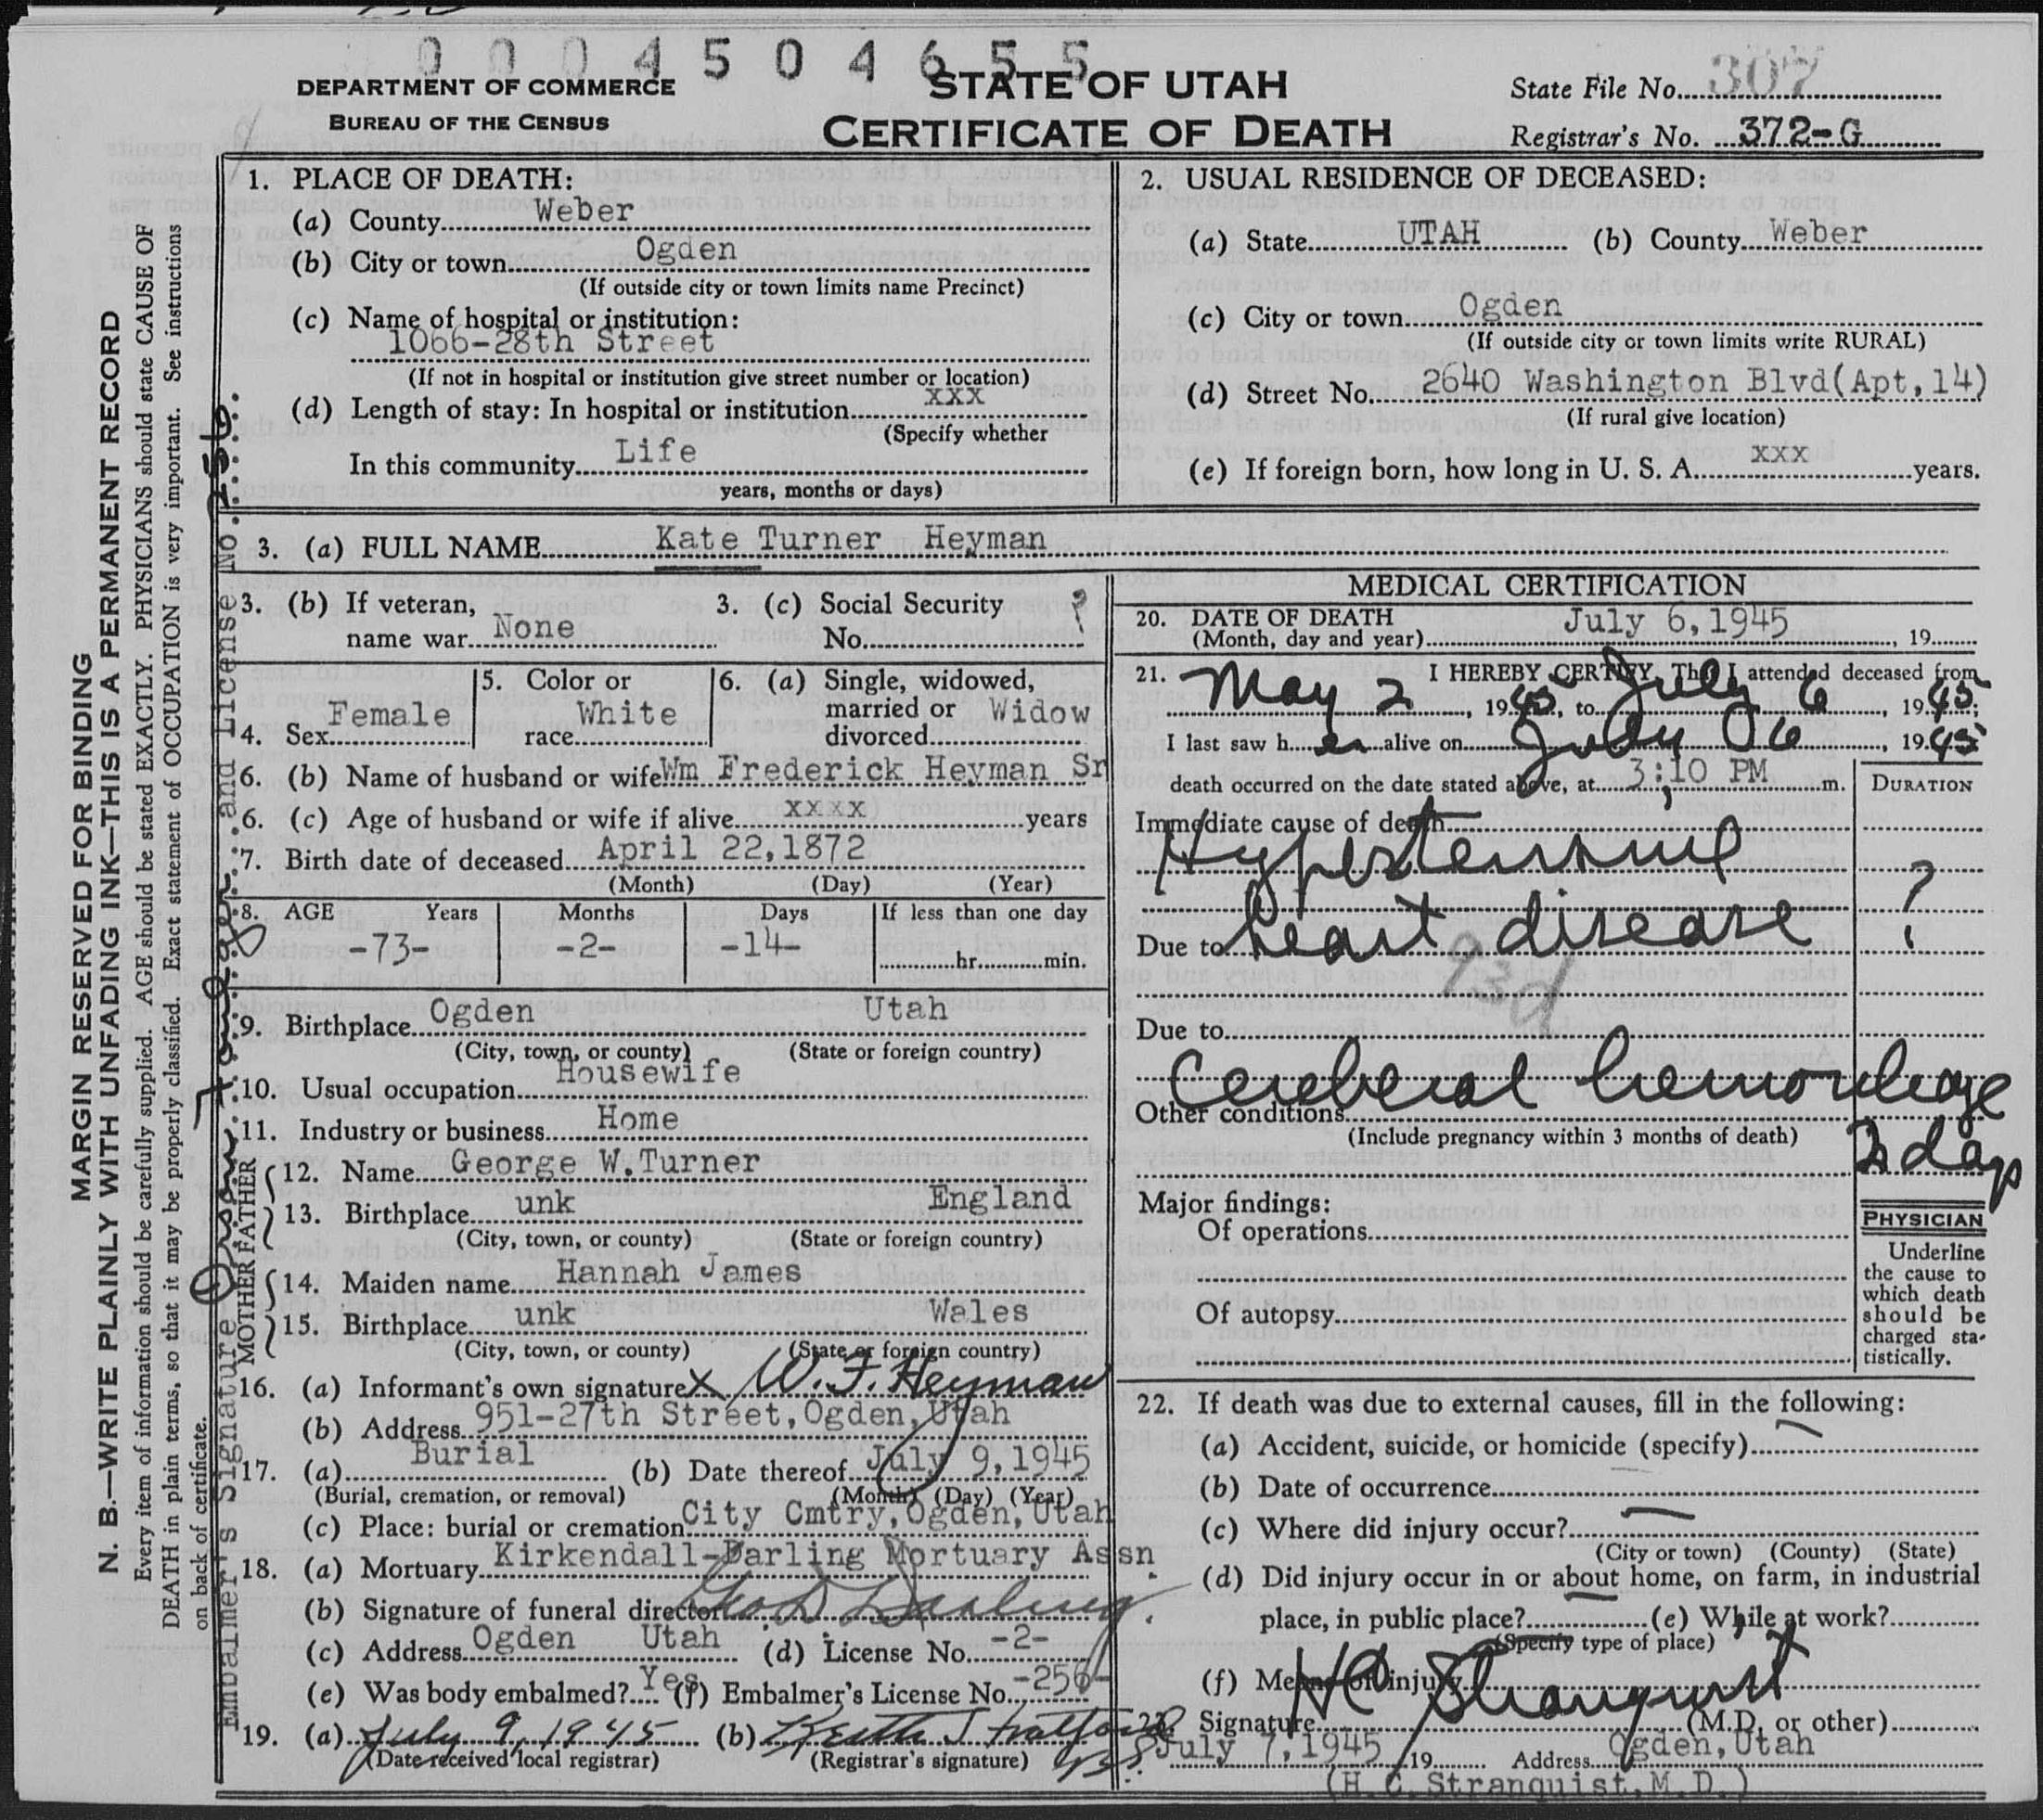 0 0 0 4 5 0 4 6 5 5
DEPARTMENT OF COMMERCE
BUREAU OF THE CENSUS
STATE OF UTAH
CERTIFICATE OF DEATH
State File No. 307
Registrar's No. 372-G
MARGIN RESERVED FOR BINDING
N. B.—WRITE PLAINLY WITH UNFADING INK—THIS IS A PERMANENT RECORD
Every item of information should be carefully supplied. AGE should be stated EXACTLY. PHYSICIANS should state CAUSE OF
DEATH in plain terms, so that it may be properly classified. Exact statement of OCCUPATION is very important. See instructions
on back of certificate.
Embalmer's Signature and License No.
1. PLACE OF DEATH:
(a) County Weber
(b) City or town Ogden
(If outside city or town limits name Precinct)
(c) Name of hospital or institution:
1066-28th Street
(If not in hospital or institution give street number or location)
(d) Length of stay: In hospital or institution xxx
(Specify whether
In this community Life
years, months or days)
2. USUAL RESIDENCE OF DECEASED:
(a) State UTAH (b) County Weber
(c) City or town Ogden
(If outside city or town limits write RURAL)
(d) Street No. 2640 Washington Blvd(Apt,14)
(If rural give location)
(e) If foreign born, how long in U. S. A. xxx years.
3. (a) FULL NAME Kate Turner Heyman
3. (b) If veteran,
name war None
3. (c) Social Security
No. ?
4. Sex Female
5. Color or
race White
6. (a) Single, widowed,
married or
divorced Widow
6. (b) Name of husband or wife Wm Frederick Heyman Sr
6. (c) Age of husband or wife if alive xxxx years
7. Birth date of deceased April 22,1872
(Month) (Day) (Year)
8. AGE Years Months Days If less than one day
-73- -2- -14- hr. min.
9. Birthplace Ogden Utah
(City, town, or county) (State or foreign country)
10. Usual occupation Housewife
11. Industry or business Home
FATHER
12. Name George W.Turner
13. Birthplace unk England
(City, town, or county) (State or foreign country)
MOTHER
14. Maiden name Hannah James
15. Birthplace unk Wales
(City, town, or county) (State or foreign country)
16. (a) Informant's own signature X W. F. Heyman
(b) Address 951-27th Street,Ogden,Utah
17. (a) Burial (b) Date thereof July 9,1945
(Burial, cremation, or removal) (Month) (Day) (Year)
(c) Place: burial or cremation City Cmtry,Ogden,Utah
18. (a) Mortuary Kirkendall-Darling Mortuary Assn
(b) Signature of funeral director Geo D Darling
(c) Address Ogden Utah (d) License No. -2-
(e) Was body embalmed? Yes (f) Embalmer's License No. -256-
19. (a) July 9, 1945 (b) Keith
(Date received local registrar) (Registrar's signature)
MEDICAL CERTIFICATION
20. DATE OF DEATH
(Month, day and year) July 6,1945, 19
21. I HEREBY CERTIFY, That I attended deceased from
May 2, 1945, to July 6, 1945;
I last saw her alive on July 6, 1945
death occurred on the date stated above, at 3:10 PM m.
DURATION
Immediate cause of death
Hypertensive
heart disease ?
Due to
93d
Due to
Cerebral hemorrhage
Other conditions
(Include pregnancy within 3 months of death)
2 days
Major findings:
Of operations
Of autopsy
PHYSICIAN
Underline
the cause to
which death
should be
charged sta-
tistically.
22. If death was due to external causes, fill in the following:
(a) Accident, suicide, or homicide (specify)
(b) Date of occurrence
(c) Where did injury occur?
(City or town) (County) (State)
(d) Did injury occur in or about home, on farm, in industrial
place, in public place? (e) While at work?
(Specify type of place)
(f) Means of injury
23. Signature HC Stranquist (M.D. or other)
July 7,1945 19 Address Ogden,Utah
(H. C. Stranquist,M.D.)